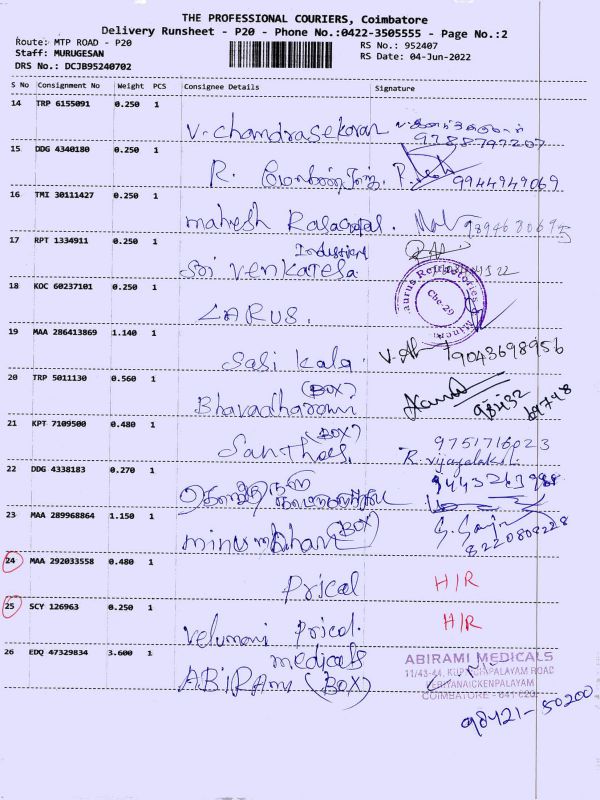 THE PROFESSIONAL COURIERS, Coimbatore
Delivery Runsheet - P20 - Phone No.:0422-3505555 - Page No.:2
Route: MTP ROAD - P20
RS No.: 952407
Staff: MURUGESAN
RS Date: 04-Jun-2022
DRS No.: DCJB95240702
S No Consignment No Weight PCS Consignee Details Signature
14 TRP 6155091 0.250 1
V. chandrasekaran
9788797207
15 DDG 4340180 0.250 1
R.
9944949069
16 TMI 30111427 0.250 1
mahesh Rasagopal.
9894680695
17 RPT 1334911 0.250 1
Industries
Sri Venkatesa
18 KOC 60237101 0.250 1
LARUS.
19 MAA 286413869 1.140 1
Sasi Kala
9043698956
20 TRP 5011130 0.560 1
(BOX)
Bhavadharani
98432
69748
21 KPT 7109500 0.480 1
(BOX)
Santhos.
9751716023
R. Vijayalaksmi
22 DDG 4338183 0.270 1
23 MAA 289968864 1.150 1
(BOX)
8220808228
24 MAA 292033558 0.480 1
Prical H/R
25 SCY 126963 0.250 1
velumani Prical. H/R
26 EDQ 47329834 3.600 1
medicals
ABIRAMI (BOX)
ABIRAMI MEDICALS
COIMBATORE - 641 020
98421-50200